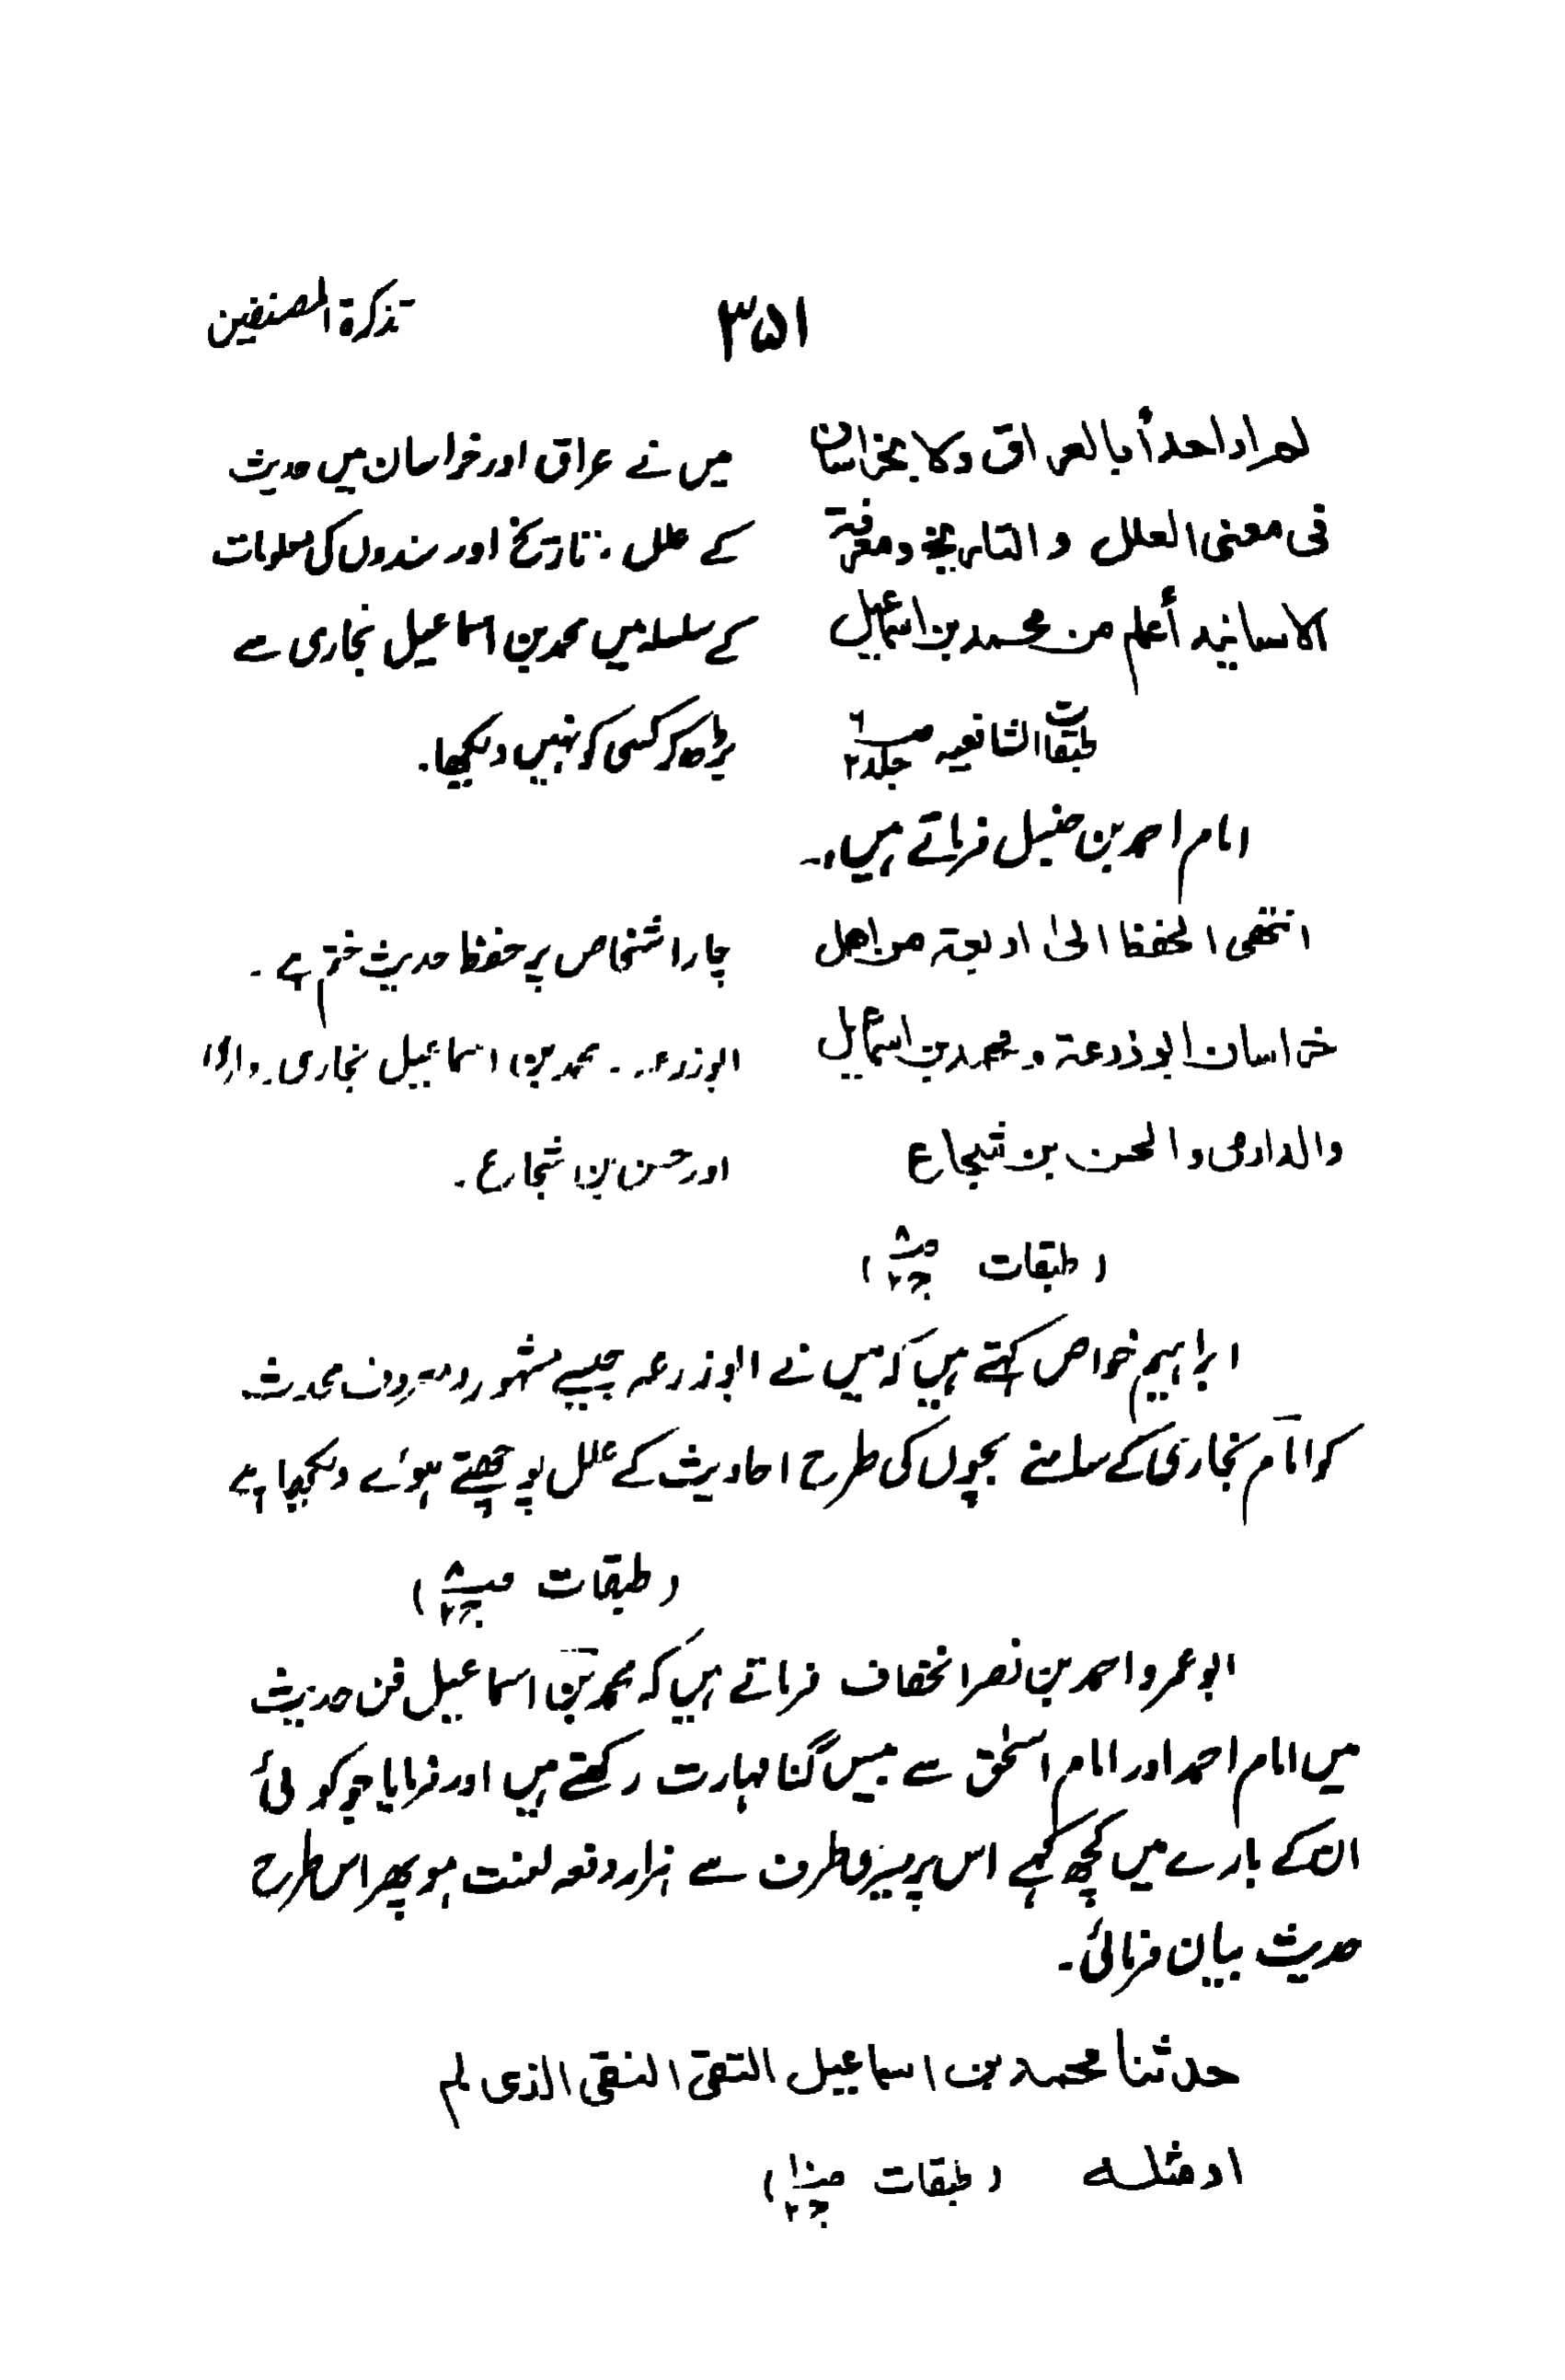 تذکرۃ المصنفین ۳۵۱
لم ار احداً بالعراق ولا بخراسان
فی معنی العلل والتاریخ ومعرفۃ
الاسانید أعلم من محمد بن اسماعیل
طبقات الشافعیہ صـ۶ جلد ۲
میں نے عراق اور خراسان میں حدیث
کے علل، تاریخ اور سندوں کی معلومات
کے سلسلہ میں محمد بن اسماعیل بخاری سے
بڑھ کر کسی کو نہیں دیکھا۔
امام احمد بن حنبل فرماتے ہیں:۔
انتھی الحفظ الیٰ اربعۃ من اھل
خراسان ابو ذرعۃ و محمد بن اسماعیل
والدارمی والحسن بن شجاع
(طبقات صـ۸ ج۲)
چار اشخاص پر حفظ حدیث ختم ہے۔
ابوزرعہ۔ محمد بن اسماعیل بخاری۔
اور حسن بن شجاع۔
ابراہیم خواص کہتے ہیں کہ میں نے ابوزرعہ جیسے مشہور و معروف محدث
کو امام بخاری کے سامنے بچوں کی طرح احادیث کے علل پوچھتے ہوئے دیکھا ہے
(طبقات صـ۸ ج۲)
ابو عمرو احمد بن نصر الخفاف فرماتے ہیں کہ محمد بن اسماعیل فن حدیث
میں امام احمد اور امام اسحٰق سے بیس گنا مہارت رکھتے ہیں اور فرمایا جو کوئی
ان کے بارے میں کچھ کہے اس پر میری طرف سے ہزار دفعہ لعنت ہو پھر اس طرح
حدیث بیان فرمائی۔
حدثنا محمد بن اسماعیل التقی النقی الذی لم
ار مثلہ (طبقات صـ۱۰ ج۲)